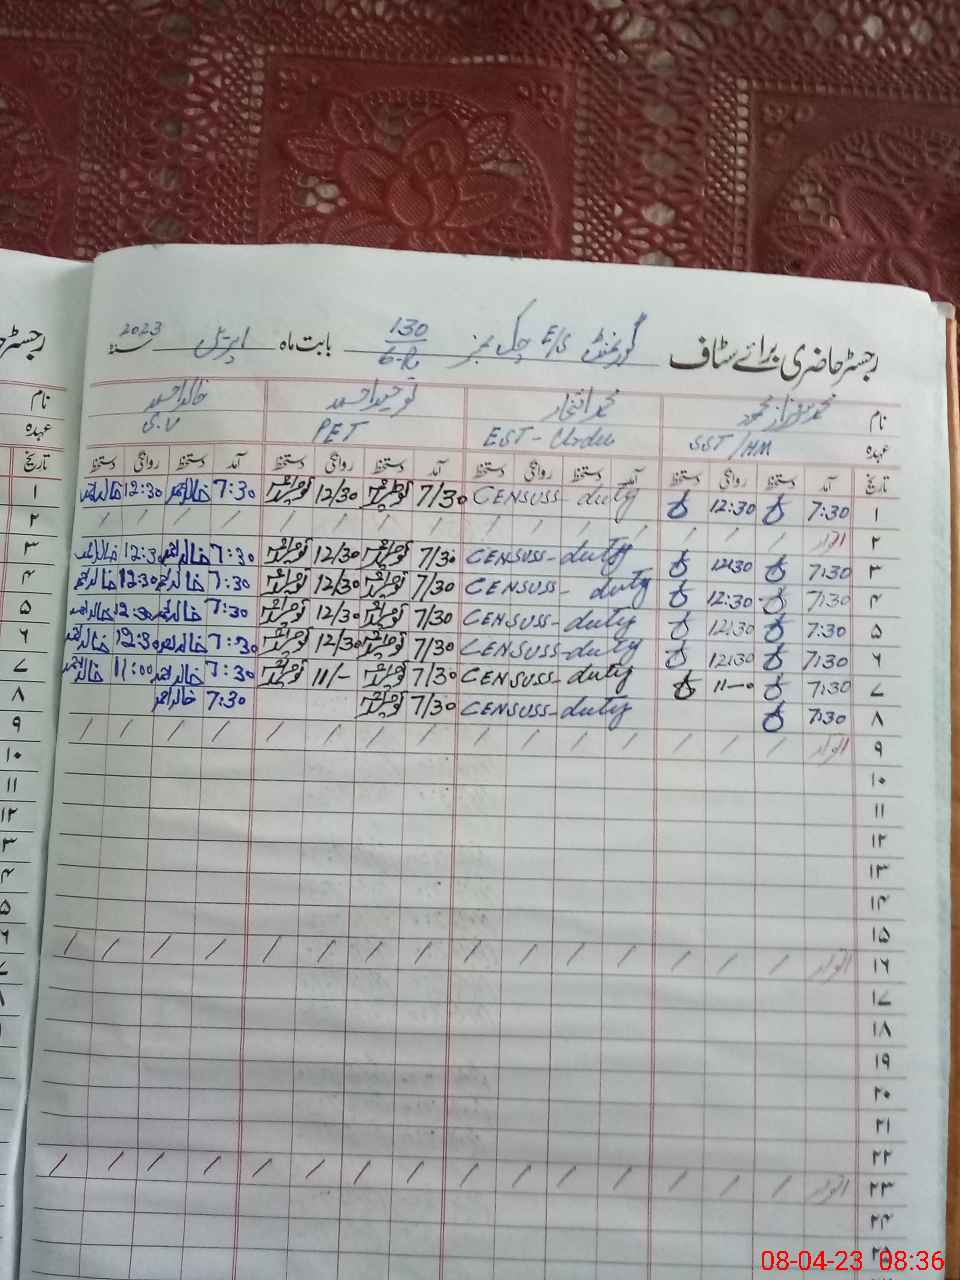 رجسٹر حاضری برائے سٹاف گورنمنٹ E/S چک نمبر 130/6-R بابت ماہ اپریل سنہ 2023
نام محمد سرفراز محمود محمد افتخار توحید احمد خالد احمد
عہدہ SST/HM EST-Urdu PET S.V
تاریخ آمد دستخط روانگی دستخط آمد دستخط روانگی دستخط آمد دستخط روانگی دستخط آمد دستخط روانگی دستخط
۱ 7:30 12:30 CENSUSS-duty 7/30 توحید 12/30 توحید 7:30 خالد احمد 12:30 خالد احمد
۲ اتوار / / / / / / / / / / / / / / /
۳ 7:30 12:30 CENSUSS-duty 7/30 توحید 12/30 توحید 7:30 خالد احمد 12:30 خالد احمد
۴ 7:30 12:30 CENSUSS-duty 7/30 توحید 12/30 توحید 7:30 خالد احمد 12:30 خالد احمد
۵ 7:30 12:30 CENSUSS-duty 7/30 توحید 12/30 توحید 7:30 خالد احمد 12:30 خالد احمد
۶ 7:30 12:30 CENSUSS-duty 7/30 توحید 12/30 توحید 7:30 خالد احمد 12:30 خالد احمد
۷ 7:30 11-0 CENSUSS-duty 7/30 توحید 11/- توحید 7:30 خالد احمد 11:00 خالد احمد
۸ 7:30 CENSUSS-duty 7/30 توحید 7:30 خالد احمد
۹ اتوار / / / / / / / / / / / / / / /
۱۰
۱۱
۱۲
۱۳
۱۴
۱۵
۱۶ اتوار / / / / / / / / / / / / / / /
۱۷
۱۸
۱۹
۲۰
۲۱
۲۲
۲۳ اتوار / / / / / / / / / / / / / / /
۲۴
۲۵
رجسٹر
نام
عہدہ
تاریخ
۱
۲
۳
۴
۵
۶
۷
۸
۹
۱۰
۱۱
۱۲
08-04-23 08:36